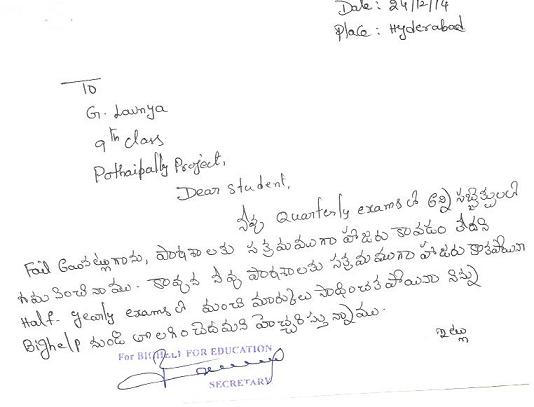 Date: 24/12/14
Place: Hyderabad
To
G. Lavnya
9th class
Pothaipally Project,
Dear Student,
నీవు Quarterly exams లో అన్ని సబ్జెక్టులలో
Fail కావడం, పాఠశాలకు సక్రమముగా హాజరు కావడం లేదని
గమనించినాము. కావున నీవు పాఠశాలకు సక్రమముగా హాజరు కాకపోయినా
Half-yearly exams లో మంచి మార్కులు సాధించకపోయినా నిన్ను
Bighelp నుండి తొలగించెదమని హెచ్చరిస్తున్నాము.
ఇట్లు
For BIGHELP FOR EDUCATION
SECRETARY